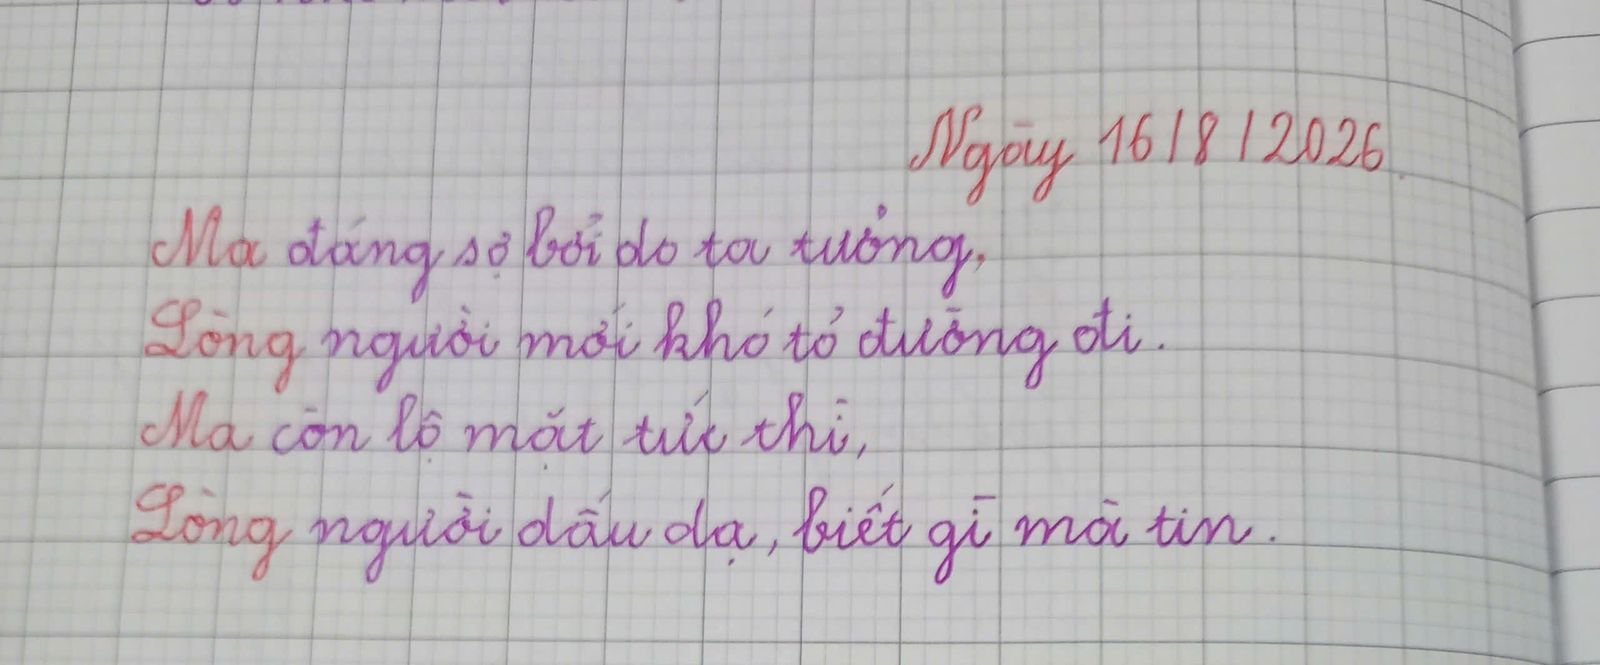 Ngày 16/8/2026.
Ma đáng sợ bởi do ta tưởng,
Lòng người mới khó tỏ đường đi.
Ma còn lộ mặt tức thì,
Lòng người dấu dạ, biết gì mà tin.